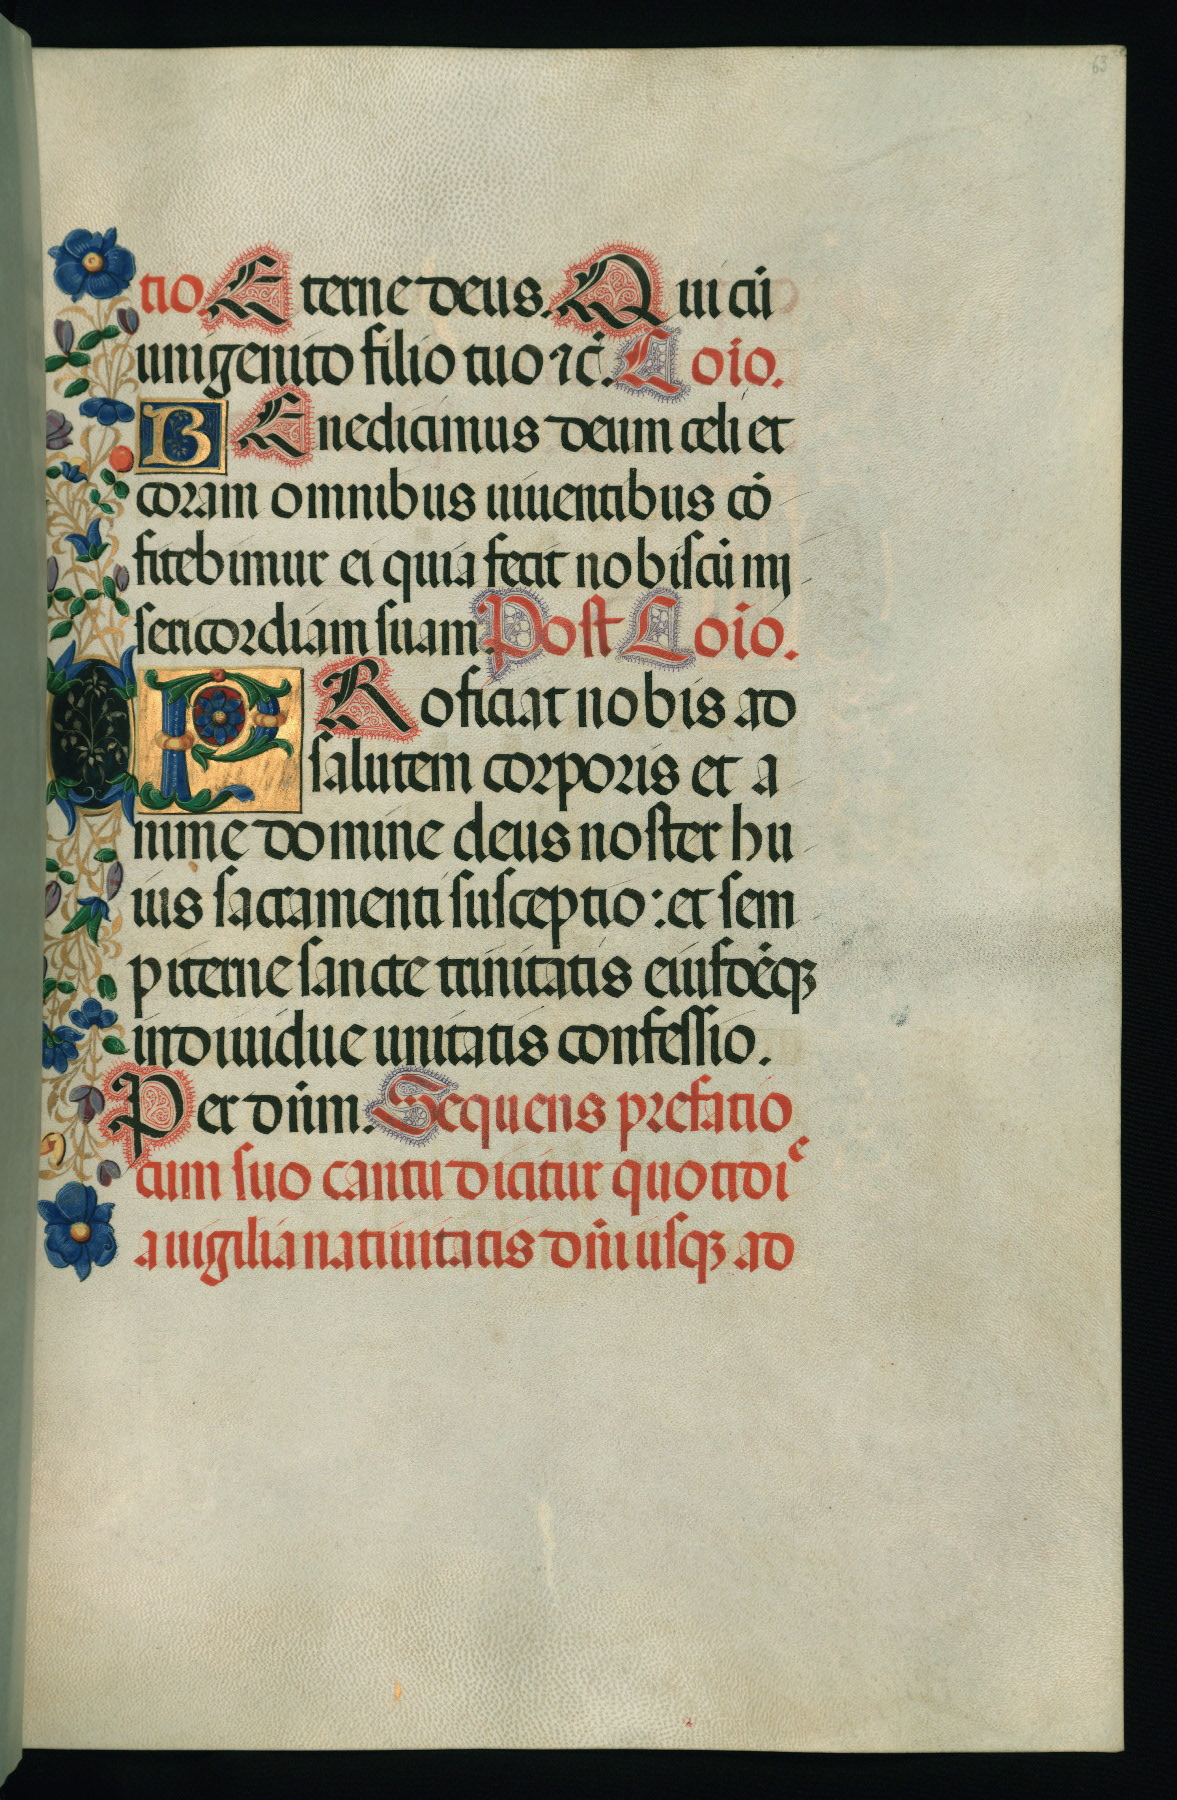 63
tio. Eterne deus. Qui cū
unigenito filio tuo ⁊c̄. Cōio.
BEnedicimus deum celi et
coram omnibus uiuentibus cō
fitebimur ei quia fecit nobiscū mi
sericordiam suam. Post Cōio.
PRoficiat nobis ad
salutem corporis et a
nime domine deus noster hu
ius sacramenti susceptio: et sem
piterne sancte trinitatis eiusdēqꝫ
indiuidue unitatis confessio.
Per dn̄m. Sequens prefatio
cum suo cantu dicitur quottdiͤ
a uigilia natiuitatis dn̄i usqꝫ ad